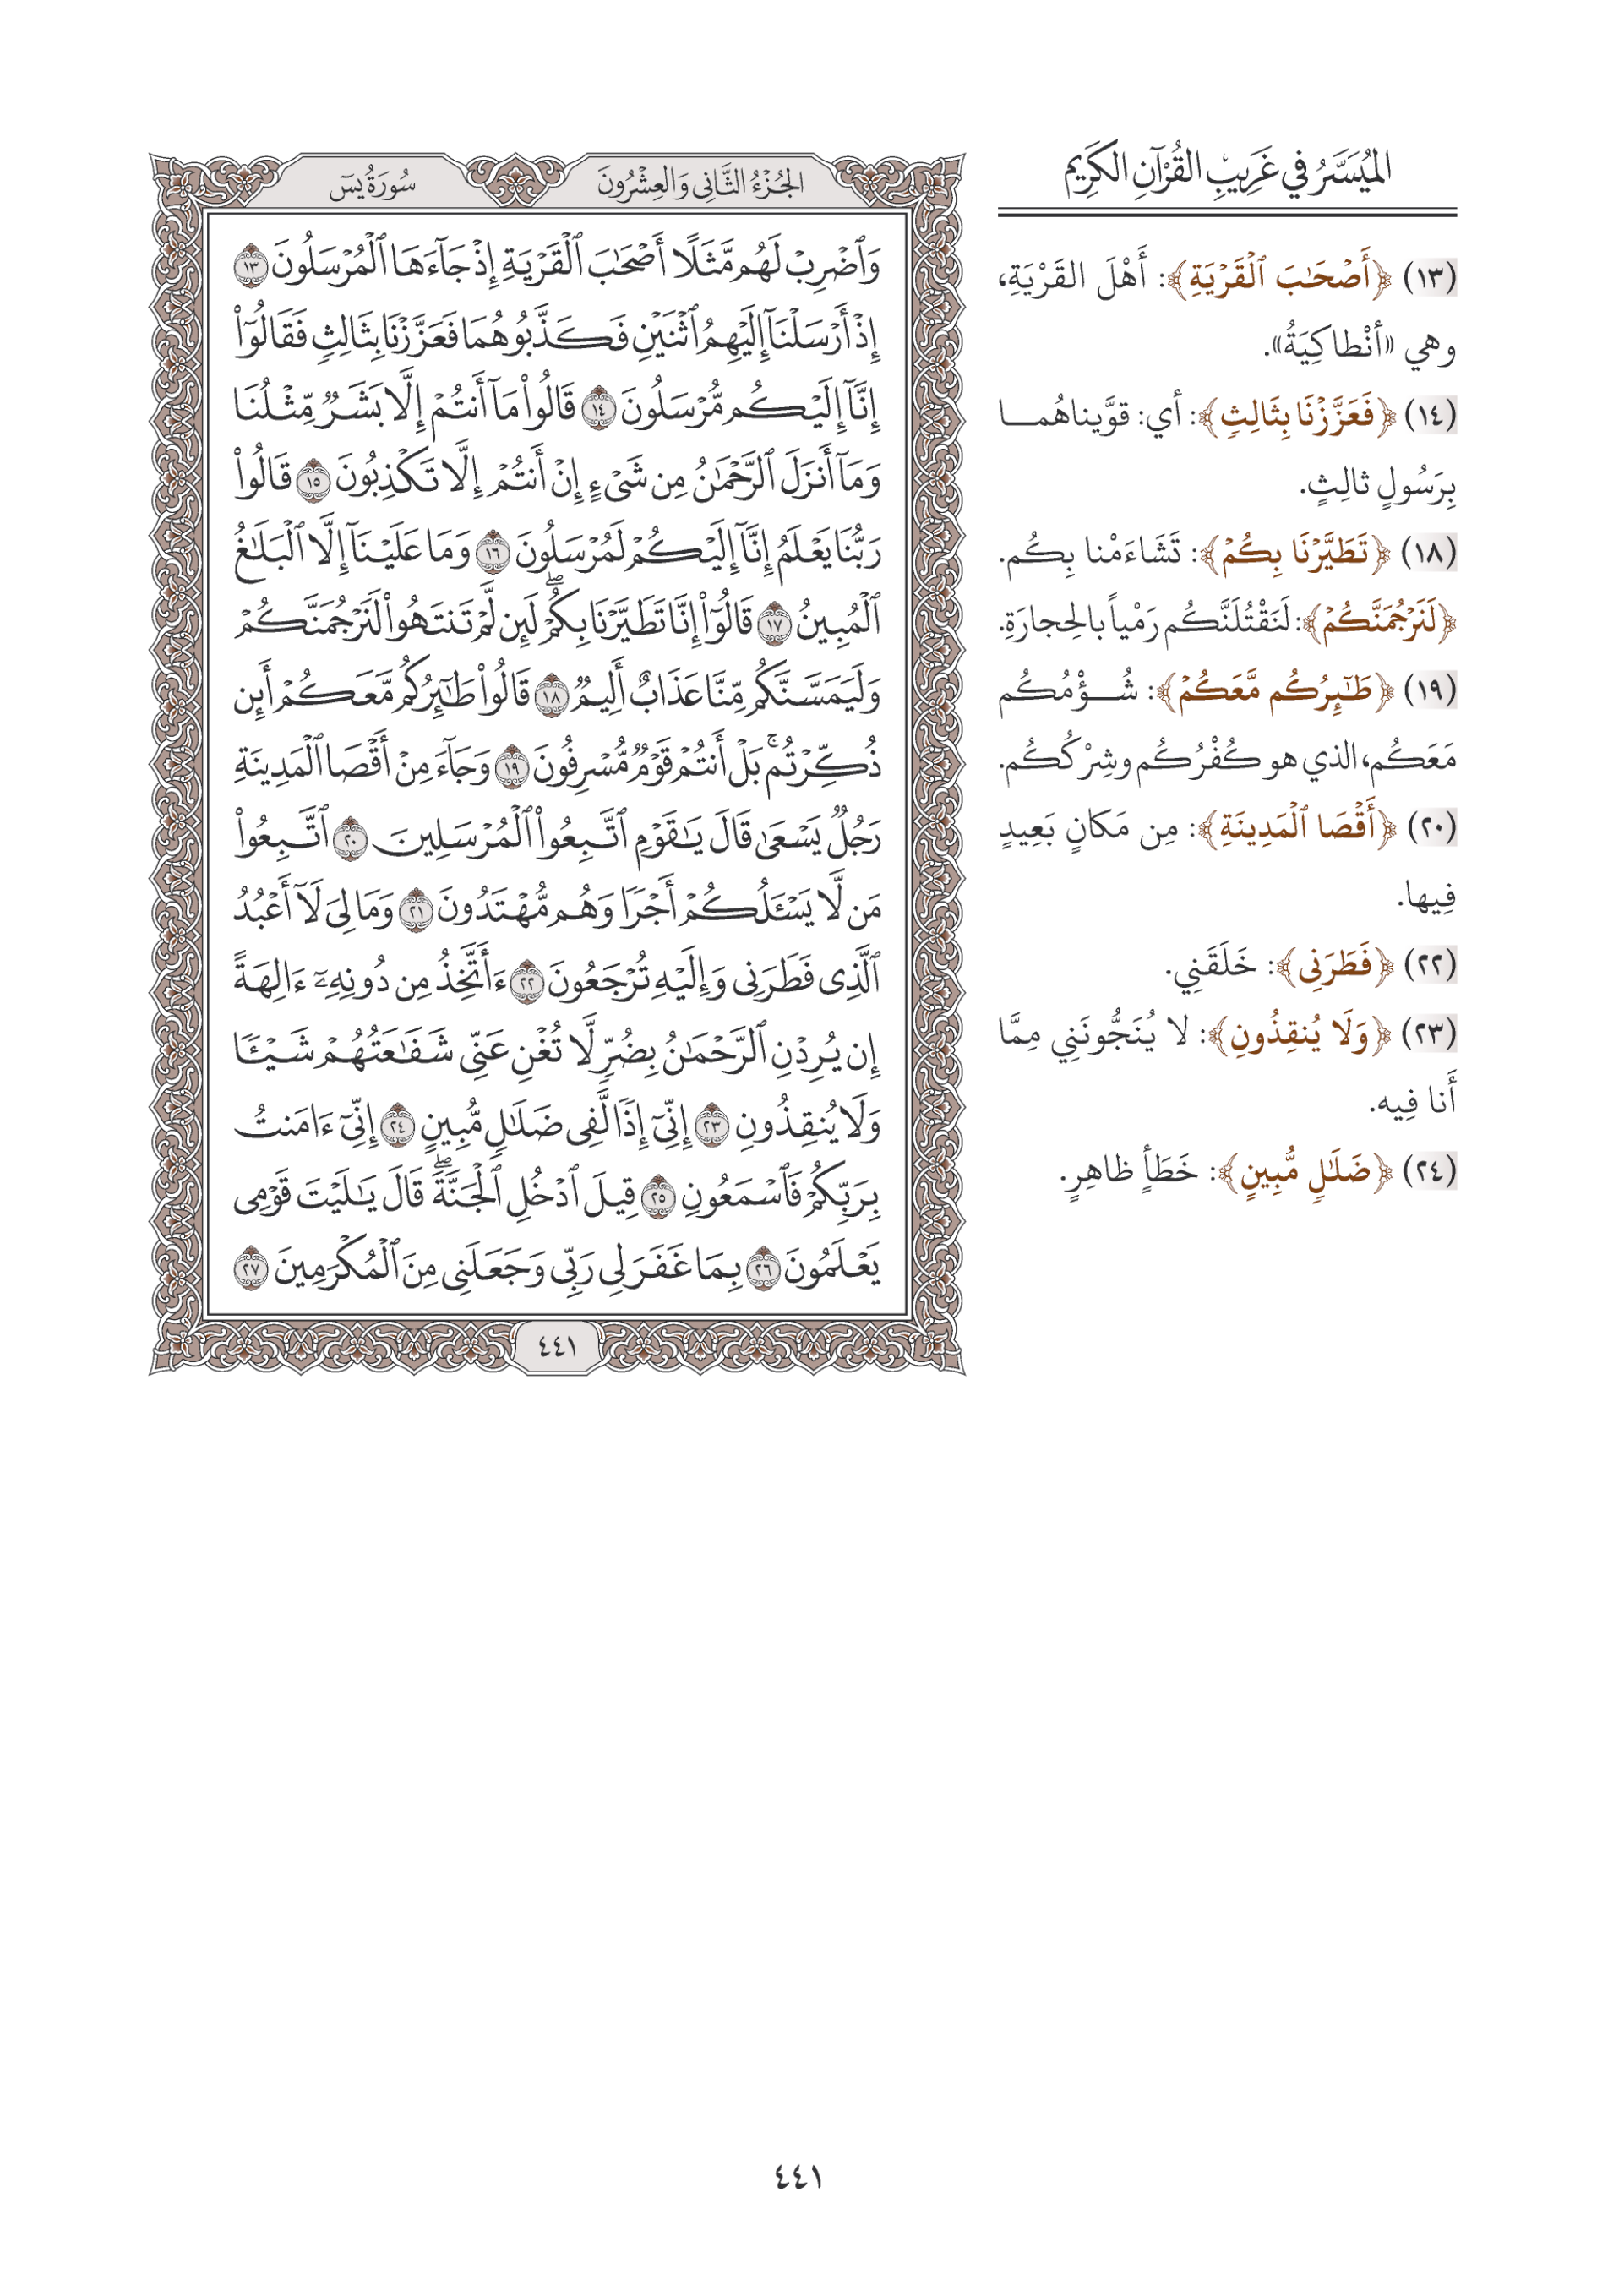 الميُسَّرُ في غَرِيبِ القُرْآنِ الكَرِيم
(١٣) ﴿أَصْحَٰبَ ٱلْقَرْيَةِ﴾: أَهْلَ القَرْيَةِ،
وهي «أنْطاكِيَةُ».
(١٤) ﴿فَعَزَّزْنَا بِثَالِثٍ﴾: أي: قوَّيناهُمـــا
بِرَسُولٍ ثالِثٍ.
(١٨) ﴿تَطَيَّرْنَا بِكُمْ﴾: تَشَاءَمْنا بِكُم.
﴿لَنَرْجُمَنَّكُمْ﴾: لَنَقْتُلَنَّكُم رَمْياً بالِحجارَةِ.
(١٩) ﴿طَٰٓئِرُكُم مَّعَكُمْ﴾: شُـــؤْمُكُم
مَعَكُم، الذي هو كُفْرُكُم وشِرْكُكُم.
(٢٠) ﴿أَقْصَا ٱلْمَدِينَةِ﴾: مِن مَكانٍ بَعِيدٍ
فِيها.
(٢٢) ﴿فَطَرَنِى﴾: خَلَقَنِي.
(٢٣) ﴿وَلَا يُنقِذُونِ﴾: لا يُنَجُّونَنِي مِمَّا
أَنا فِيه.
(٢٤) ﴿ضَلَٰلٍ مُّبِينٍ﴾: خَطَأٍ ظاهِرٍ.
الجُزْءُ الثَّانِى وَالعِشْرُونَ سُورَةُ يسٓ
وَٱضْرِبْ لَهُم مَّثَلًا أَصْحَٰبَ ٱلْقَرْيَةِ إِذْ جَآءَهَا ٱلْمُرْسَلُونَ ١٣
إِذْ أَرْسَلْنَآ إِلَيْهِمُ ٱثْنَيْنِ فَكَذَّبُوهُمَا فَعَزَّزْنَا بِثَالِثٍ فَقَالُوٓا۟
إِنَّآ إِلَيْكُم مُّرْسَلُونَ ١٤ قَالُوا۟ مَآ أَنتُمْ إِلَّا بَشَرٌ مِّثْلُنَا
وَمَآ أَنزَلَ ٱلرَّحْمَٰنُ مِن شَىْءٍ إِنْ أَنتُمْ إِلَّا تَكْذِبُونَ ١٥ قَالُوا۟
رَبُّنَا يَعْلَمُ إِنَّآ إِلَيْكُمْ لَمُرْسَلُونَ ١٦ وَمَا عَلَيْنَآ إِلَّا ٱلْبَلَٰغُ
ٱلْمُبِينُ ١٧ قَالُوٓا۟ إِنَّا تَطَيَّرْنَا بِكُمْۖ لَئِن لَّمْ تَنتَهُوا۟ لَنَرْجُمَنَّكُمْ
وَلَيَمَسَّنَّكُم مِّنَّا عَذَابٌ أَلِيمٌ ١٨ قَالُوا۟ طَٰٓئِرُكُم مَّعَكُمْ أَئِن
ذُكِّرْتُمۚ بَلْ أَنتُمْ قَوْمٌ مُّسْرِفُونَ ١٩ وَجَآءَ مِنْ أَقْصَا ٱلْمَدِينَةِ
رَجُلٌ يَسْعَىٰ قَالَ يَٰقَوْمِ ٱتَّبِعُوا۟ ٱلْمُرْسَلِينَ ٢٠ ٱتَّبِعُوا۟
مَن لَّا يَسْـَٔلُكُمْ أَجْرًا وَهُم مُّهْتَدُونَ ٢١ وَمَا لِىَ لَآ أَعْبُدُ
ٱلَّذِى فَطَرَنِى وَإِلَيْهِ تُرْجَعُونَ ٢٢ ءَأَتَّخِذُ مِن دُونِهِۦٓ ءَالِهَةً
إِن يُرِدْنِ ٱلرَّحْمَٰنُ بِضُرٍّ لَّا تُغْنِ عَنِّى شَفَٰعَتُهُمْ شَيْـًٔا
وَلَا يُنقِذُونِ ٢٣ إِنِّىٓ إِذًا لَّفِى ضَلَٰلٍ مُّبِينٍ ٢٤ إِنِّىٓ ءَامَنتُ
بِرَبِّكُمْ فَٱسْمَعُونِ ٢٥ قِيلَ ٱدْخُلِ ٱلْجَنَّةَۖ قَالَ يَٰلَيْتَ قَوْمِى
يَعْلَمُونَ ٢٦ بِمَا غَفَرَ لِى رَبِّى وَجَعَلَنِى مِنَ ٱلْمُكْرَمِينَ ٢٧
٤٤١
٤٤١